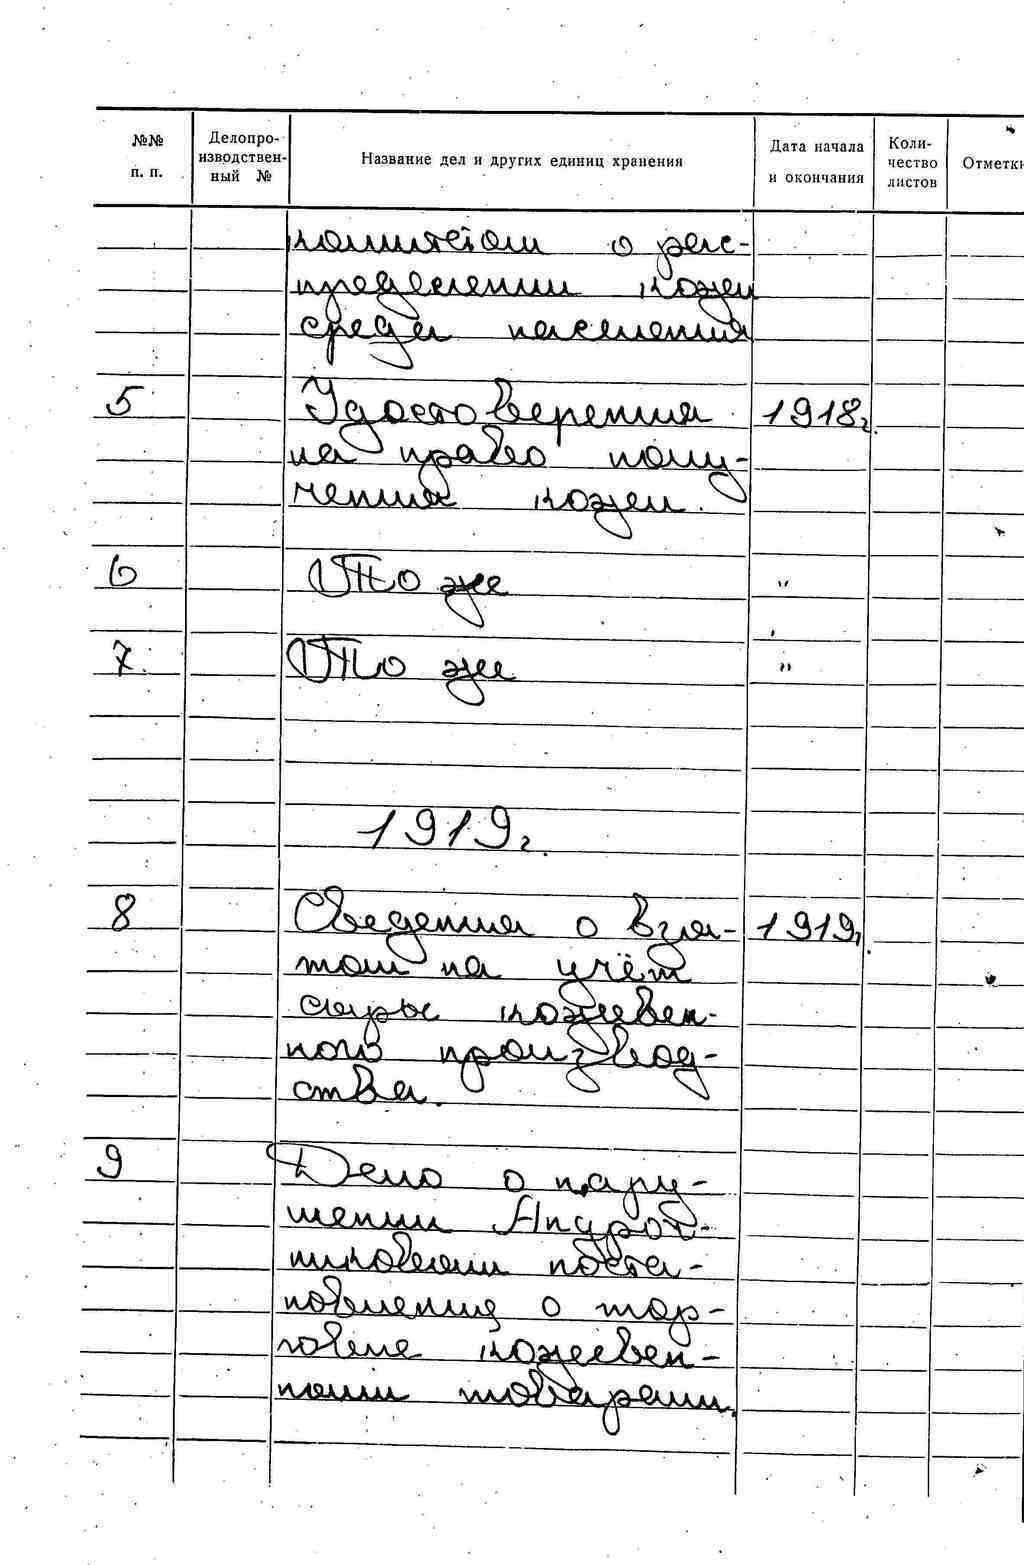 №№ п. п.
Делопро-
изводствен-
ный №
Название дел и других единиц хранения
Дата начала
и окончания
Коли-
чество
листов
Отметки
комитетом о рас-
пределении кожи
среди населения
5 Удостоверения 1918г.
на право полу-
чения кожи.
6 То же "
7. То же "
1919г.
8 Сведения о взя- 1919г.
том на учёт
сырье кожевен-
ного производ-
ства.
9 Дело о нару-
шении
поста-
новления о тор-
говле кожевен-
ными товарами.